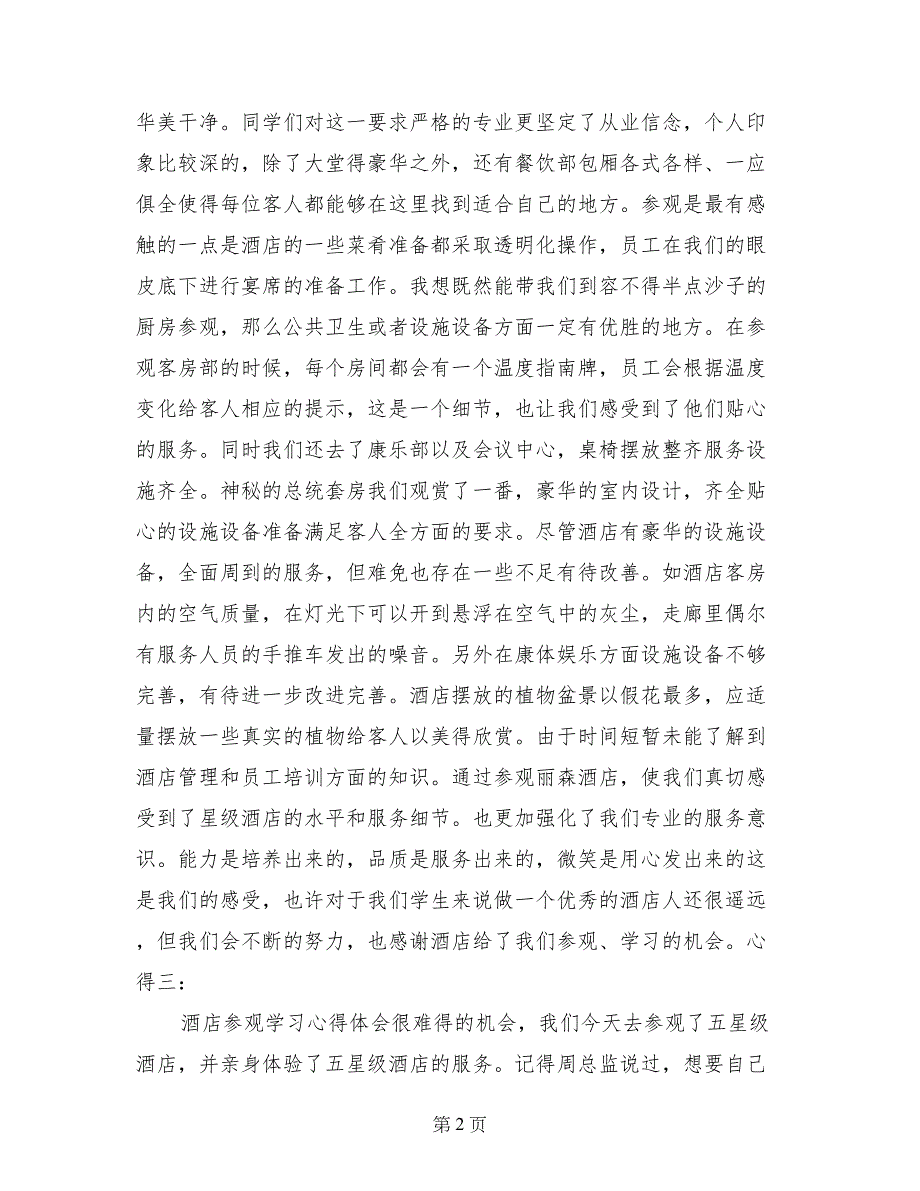 华美干净。同学们对这一要求严格的专业更坚定了从业信念，个人印
象比较深的，除了大堂得豪华之外，还有餐饮部包厢各式各样、一应
俱全使得每位客人都能够在这里找到适合自己的地方。参观是最有感
触的一点是酒店的一些菜肴准备都采取透明化操作，员工在我们的眼
皮底下进行宴席的准备工作。我想既然能带我们到容不得半点沙子的
厨房参观，那么公共卫生或者设施设备方面一定有优胜的地方。在参
观客房部的时候，每个房间都会有一个温度指南牌，员工会根据温度
变化给客人相应的提示，这是一个细节，也让我们感受到了他们贴心
的服务。同时我们还去了康乐部以及会议中心，桌椅摆放整齐服务设
施齐全。神秘的总统套房我们观赏了一番，豪华的室内设计，齐全贴
心的设施设备准备满足客人全方面的要求。尽管酒店有豪华的设施设
备，全面周到的服务，但难免也存在一些不足有待改善。如酒店客房
内的空气质量，在灯光下可以开到悬浮在空气中的灰尘，走廊里偶尔
有服务人员的手推车发出的噪音。另外在康体娱乐方面设施设备不够
完善，有待进一步改进完善。酒店摆放的植物盆景以假花最多，应适
量摆放一些真实的植物给客人以美得欣赏。由于时间短暂未能了解到
酒店管理和员工培训方面的知识。通过参观丽森酒店，使我们真切感
受到了星级酒店的水平和服务细节。也更加强化了我们专业的服务意
识。能力是培养出来的，品质是服务出来的，微笑是用心发出来的这
是我们的感受，也许对于我们学生来说做一个优秀的酒店人还很遥远
，但我们会不断的努力，也感谢酒店给了我们参观、学习的机会。心
得三：
酒店参观学习心得体会很难得的机会，我们今天去参观了五星级
酒店，并亲身体验了五星级酒店的服务。记得周总监说过，想要自己
第 2 页